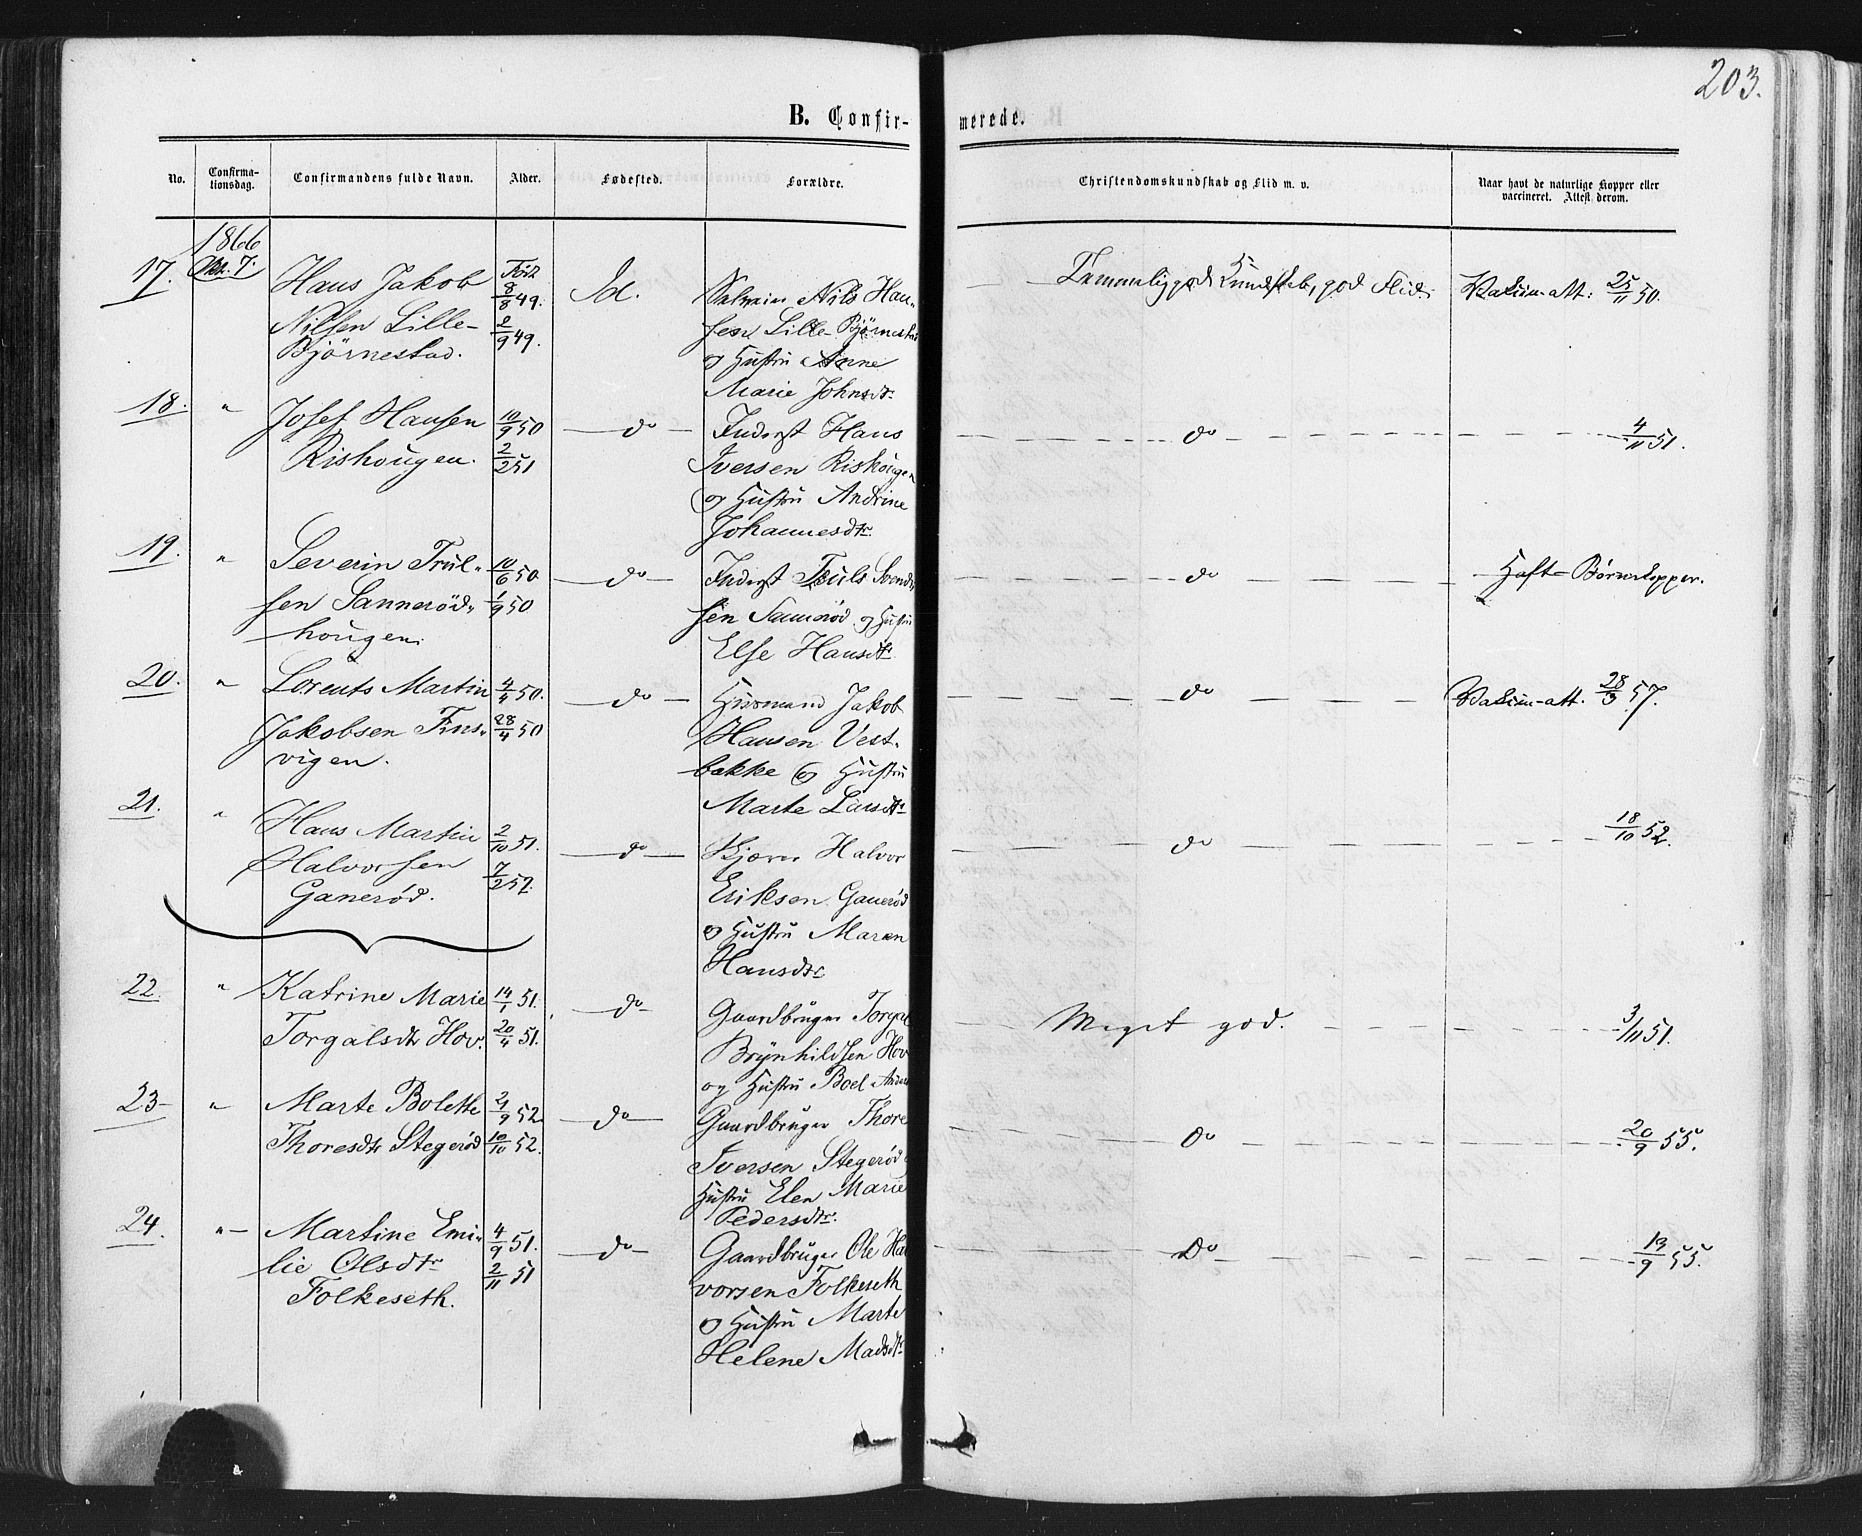 203.
B. Confir-
merede.
No.
Confirma-
tionsdag.
Confirmandens fulde Navn.
Alder.
Fødested.
Forældre.
Christendomskundskab og Flid m. v.
Naar havt de naturlige Kopper eller
vaccineret. Attest derom.
1866
17.
Okt. 7.
Hans Jakob
Nilsen Lille-
Bjørnestad.
Født
8/8 49.
2/9 49.
Id.
Nils Han-
sen Lille-Bjørnestad
og Hustru Anne
Marie Johnsdtr
Temmelig god Kundskab, god Flid.
Vaksin-att: 25/11 50.
18.
"
Josef Hansen
Rishougen.
10/9 50
2/2 51
do
Inderst Hans
Iversen Rishougen
og Hustru Andrine
Johannesdtr
do
4/11 51.
19.
"
Severin Trul-
sen Sannerød-
hougen.
10/6 50
1/9 50
do
Inderst Truls Svend-
sen Sannerød og Hustru
Else Hansdtr
do
Haft Børnekopper.
20.
"
Lorents Martin
Jakobsen Fins-
vigen.
4/4 50.
28/4 50
do
Husmand Jakob
Hansen Vest-
bække og Hustru
Marte Larsdtr
do
Vaksin-att. 28/3 57.
21.
"
Hans Martin
Halvorsen
Ganerød.
2/10 51.
7/2 52.
do
Halvor
Eriksen Ganerød
og Hustru Maren
Hansdtr
do
18/10 52.
22.
"
Katrine Marie
Torgalsdtr Hov.
14/1 51.
20/4 51.
do
Gaardbruger Torgal
Brynhildsen Hov
og Hustru Boel Anders
Meget god.
3/11 51.
23
"
Marte Bolette
Thoresdtr Stegerød
2/9 52
10/10 52.
do
Gaardbruger Thore
Iversen Stegerød
Hustru Elen Marie
Pedersdtr.
do
20/9 55.
24.
"
Martine Emi-
lie Olsdtr
Folkeseth.
4/9 51.
2/11 51
do
Gaardbruger Ole Hal
vorsen Folkeseth
og Hustru Marte
Helene Madsdtr
Do
19/9 55.